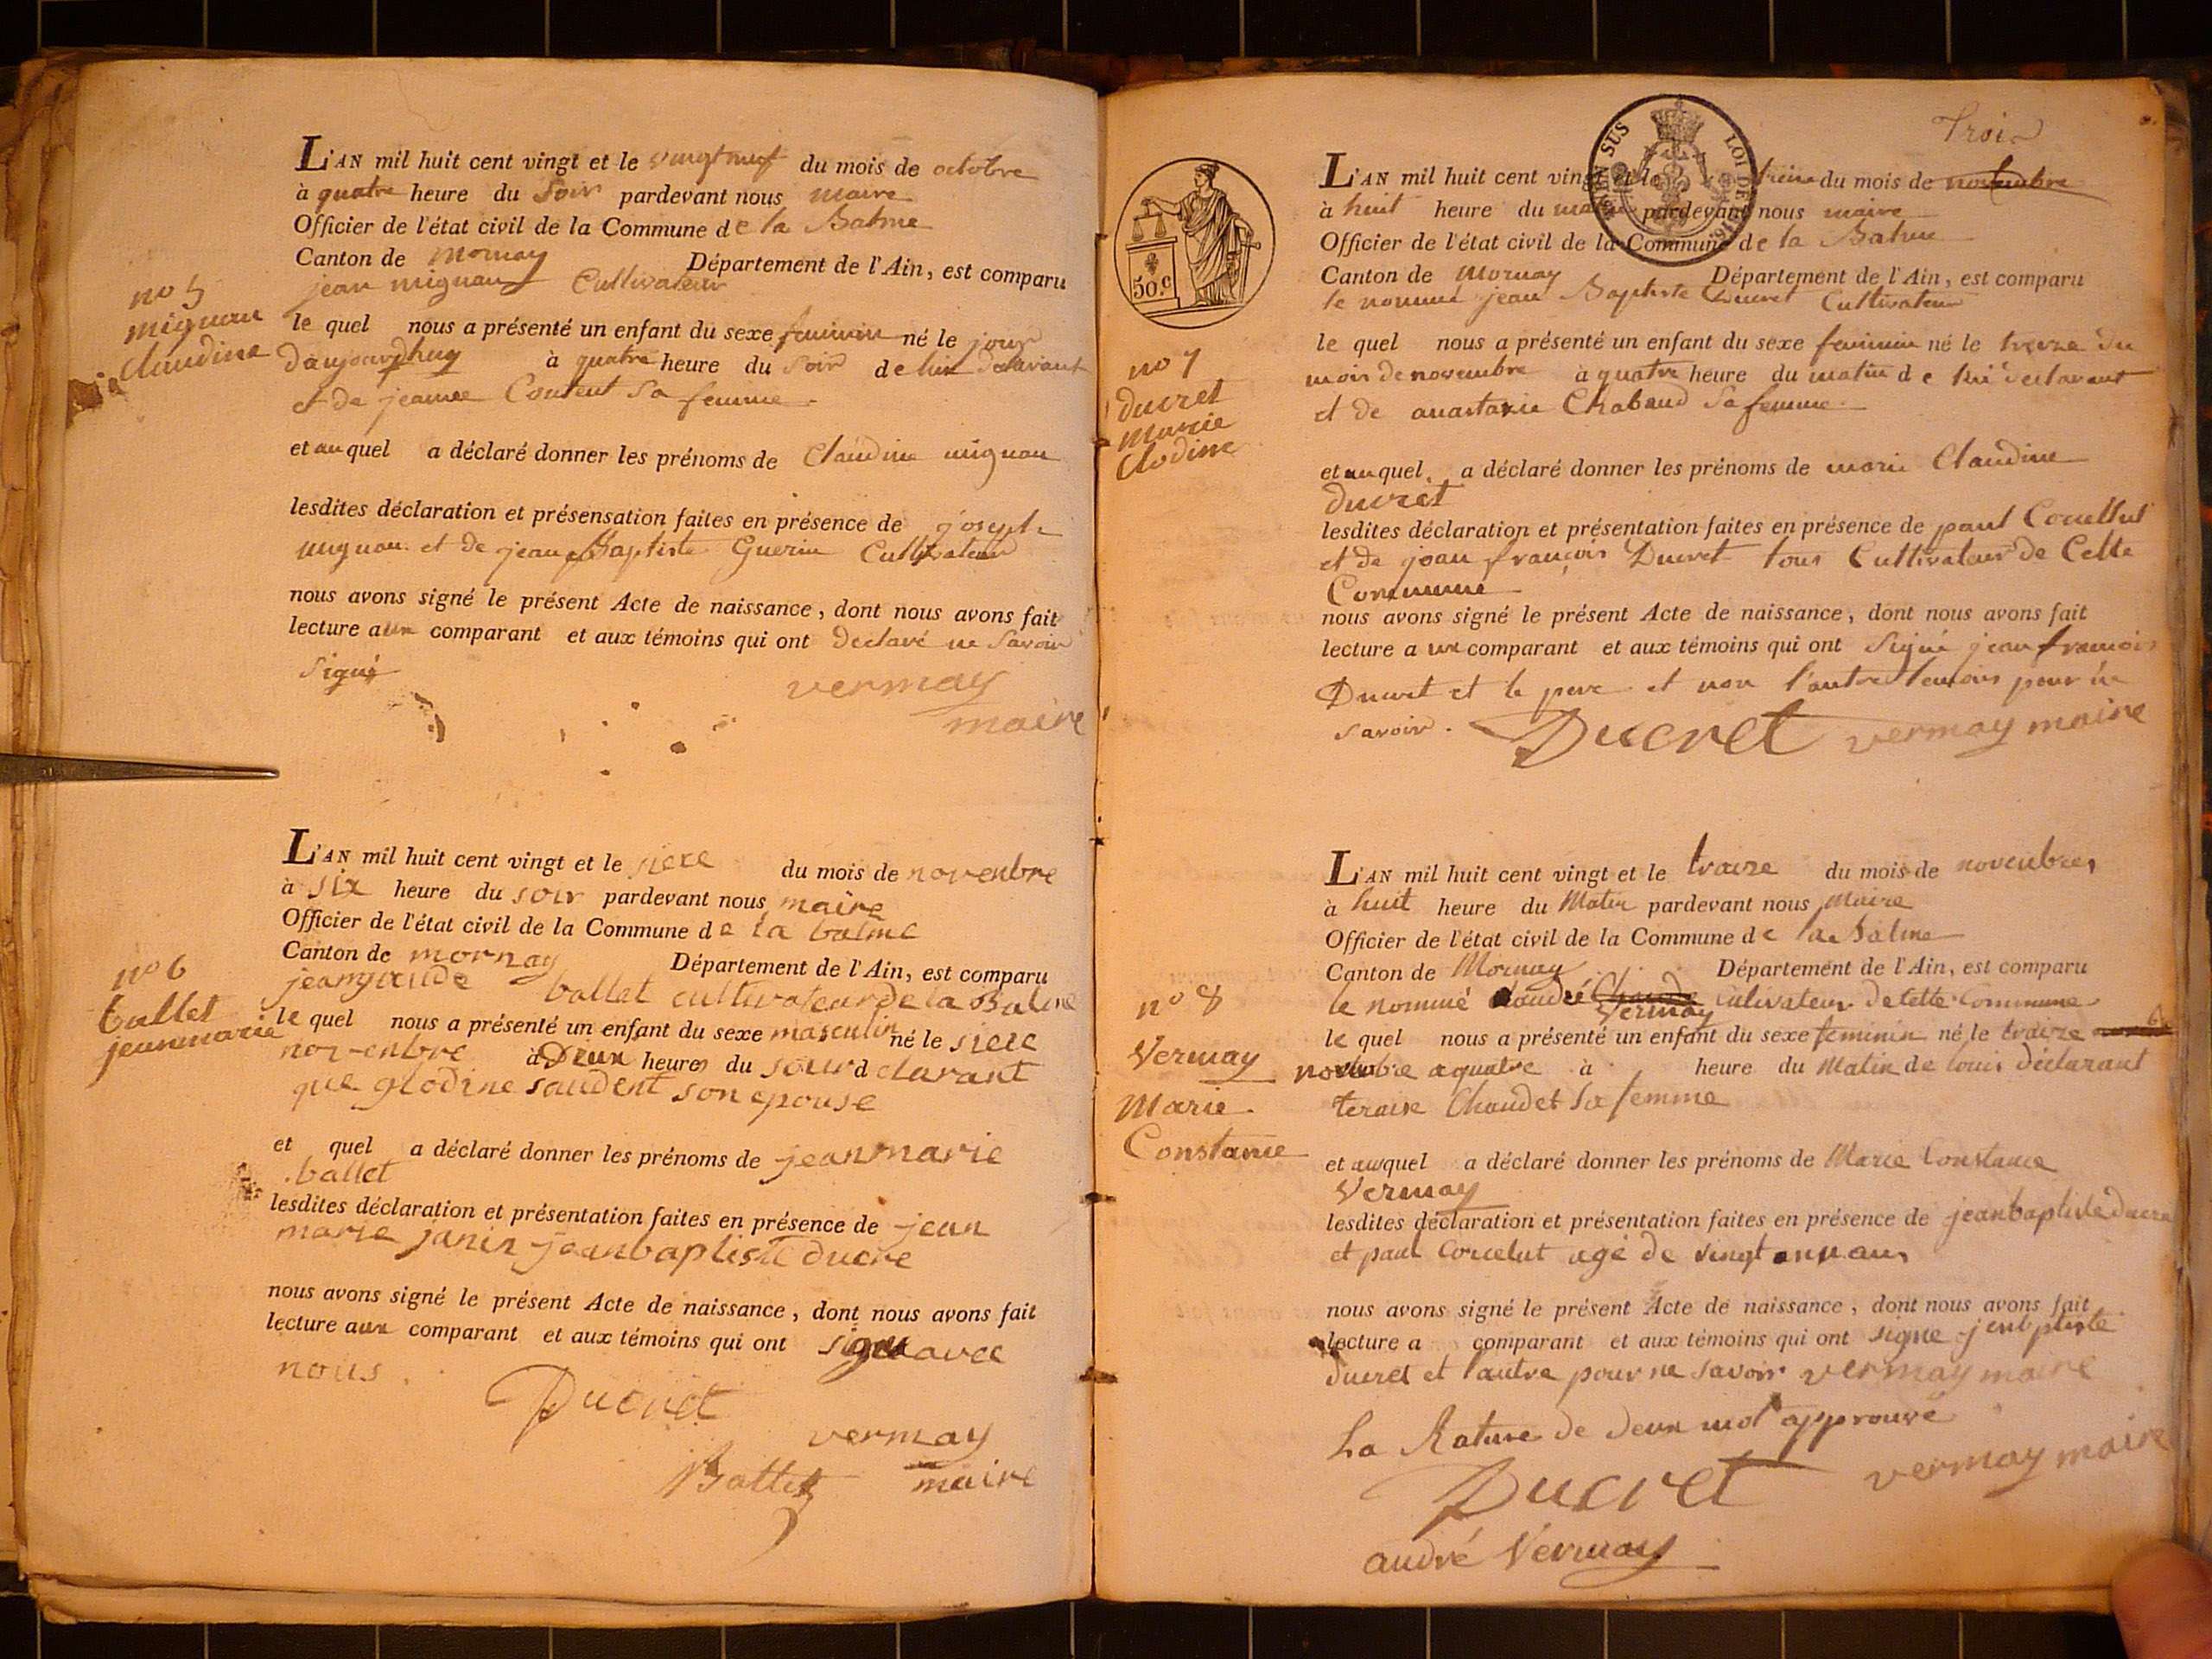 no 5
mignau
Claudine
L'AN mil huit cent vingt et le vingt neuf du mois de octobre
à quatre heure du Soir pardevant nous maire
Officier de l'état civil de la Commune de la Balme
Canton de Mornay Département de l'Ain, est comparu
jean mignau Cultivateur
le quel nous a présenté un enfant du sexe feminin né le jour
daujourdhuy à quatre heure du Soir de lui declarant
et de jeanne Content Sa femme
et au quel a déclaré donner les prénoms de Claudine mignau
lesdites déclaration et présensation faites en présence de joseph
mignau et de jean Baptiste Guerin Cultivateur
nous avons signé le présent Acte de naissance, dont nous avons fait
lecture aux comparant et aux témoins qui ont declaré ne Savoir
Signé
vermay
maire
no 6
ballet
jeanmarie
L'AN mil huit cent vingt et le siexe du mois de novenbre
à six heure du soir pardevant nous maire
Officier de l'état civil de la Commune de la balme
Canton de mornay Département de l'Ain, est comparu
ballet cultivateur de la Balme
le quel nous a présenté un enfant du sexe masculin né le siexe
novenbre à Deux heures du
que glodine saudent son epouse
et quel a déclaré donner les prénoms de jeanmarie
ballet
lesdites déclaration et présentation faites en présence de jean
marie janin jeanbaptiste ducre
nous avons signé le présent Acte de naissance, dont nous avons fait
lecture aux comparant et aux témoins qui ont signe avec
nous
Ducret
vermay
Ballet maire
Trois
TIMB EN SUS LOI DE 1816
50.c
no 7
ducret
marie
Clodine
L'AN mil huit cent vingt et le treize du mois de novembre
à huit heure du matin pardevant nous maire
Officier de l'état civil de la Commune de la Balme
Canton de Mornay Département de l'Ain, est comparu
le nommé jean Baptiste Ducret Cultivateur
le quel nous a présenté un enfant du sexe feminin né le treize du
mois de novembre à quatre heure du matin de lui declarant
et de anastasie Chabaud Sa femme
et au quel a déclaré donner les prénoms de marie Claudine
ducret
lesdites déclaration et présentation faites en présence de paul
et de jean françois Ducret tous Cultivateur de Cette
Commune
nous avons signé le présent Acte de naissance, dont nous avons fait
lecture a ux comparant et aux témoins qui ont Signé jean francois
Ducret et le pere et non l'autre temoin pour ne
savoir.
Ducret vermay maire
no 8
Vermay
Marie
Constance
L'AN mil huit cent vingt et le traize du mois de novenbre
à huit heure du Matin pardevant nous Maire
Officier de l'état civil de la Commune de la Balme
Canton de Mornay Département de l'Ain, est comparu
le nommé andré Vermay cultivateur de cette Commune
le quel nous a présenté un enfant du sexe feminin né le traize
novenbre a quatre à heure du Matin de louis déclarant
teraise Chaudet Sa femme
et auquel a déclaré donner les prénoms de Marie Constance
Vermay
lesdites déclaration et présentation faites en présence de jeanbaptiste ducret
et paul Corcelut agé de vingt ans
nous avons signé le présent Acte de naissance, dont nous avons fait
lecture a comparant et aux témoins qui ont signe
ducret et l'autre pour ne savoir vermay maire
La Rature de deux mot approuvé
Ducret vermay maire
andré Vermay